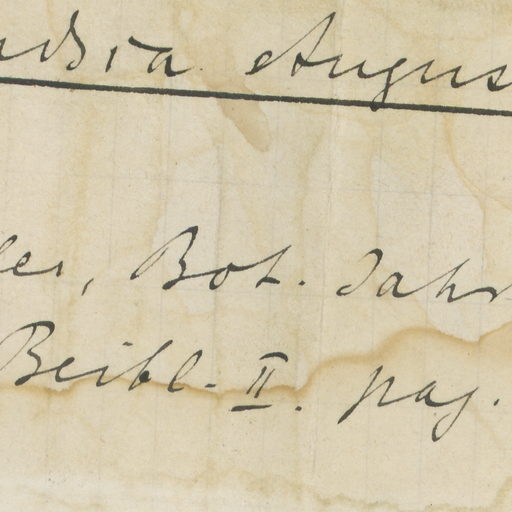 Augus
ler, Bot. Jahr
Beibl. II. pag.